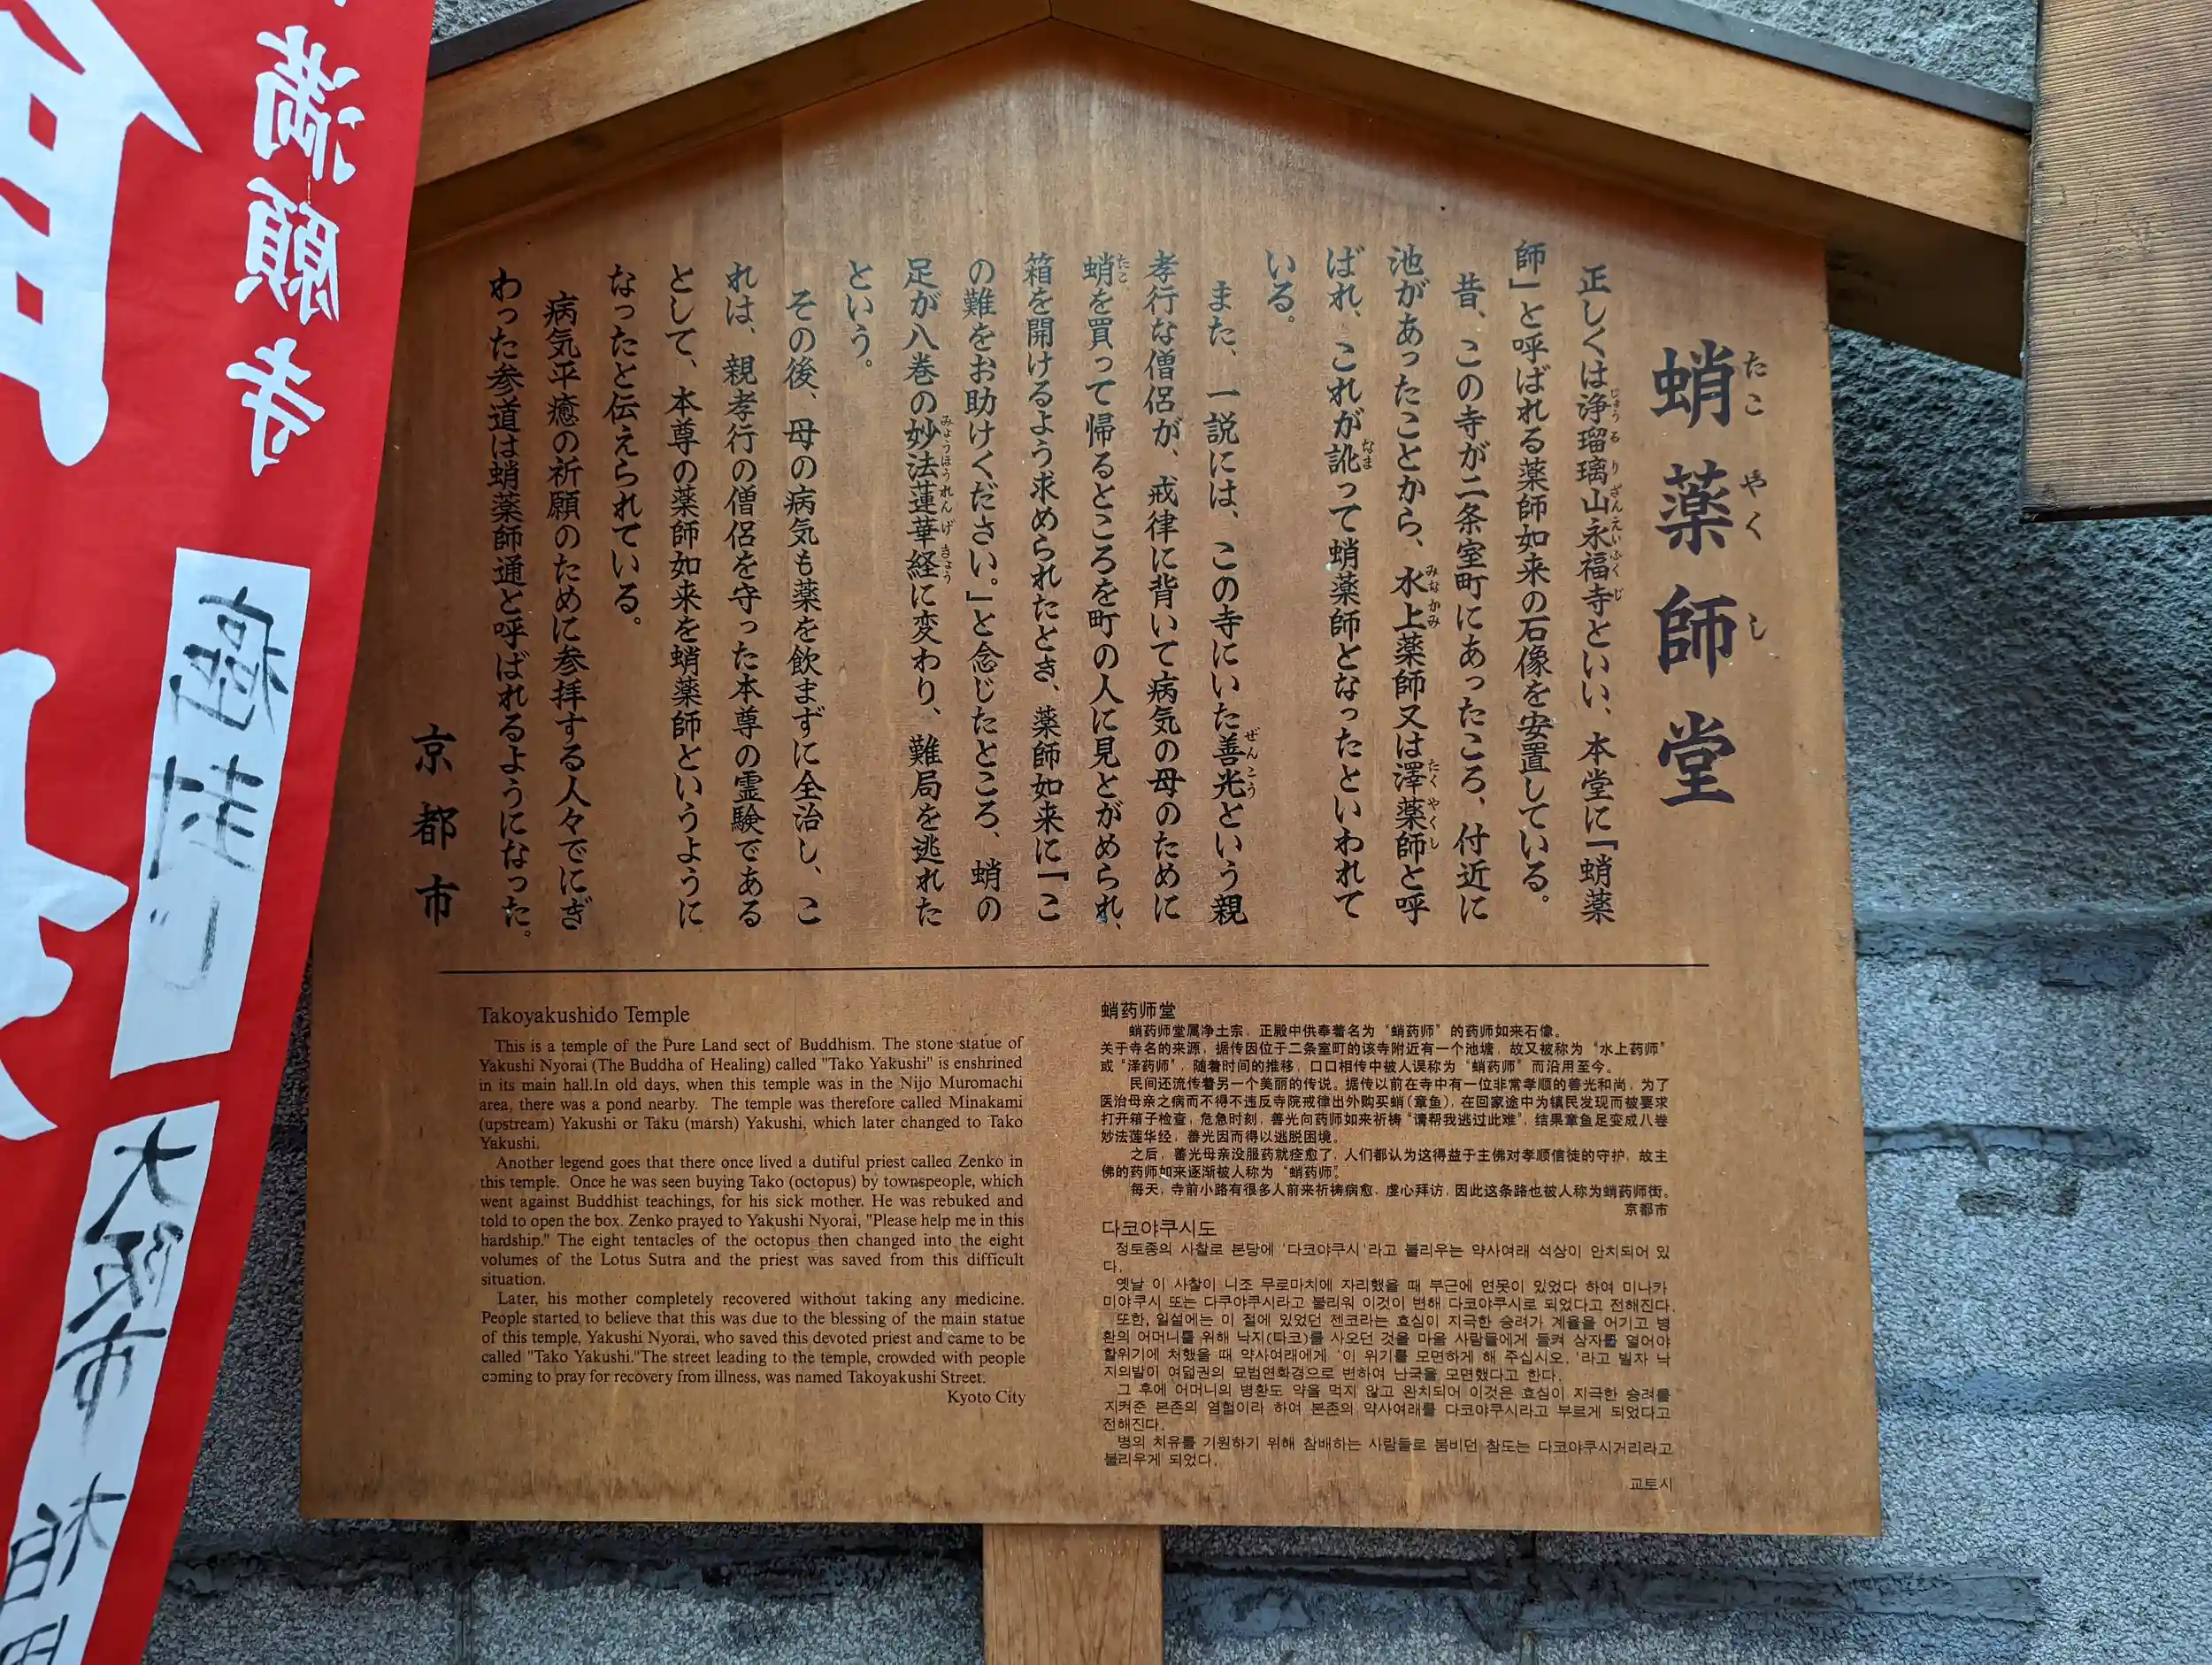 満願寺
大阪市
蛸薬師堂
たこやくし
正しくは浄瑠璃山永福寺といい、本堂に「蛸薬
じょうるりざんえいふくじ
師」と呼ばれる薬師如来の石像を安置している。
昔、この寺が二条室町にあったころ、付近に
池があったことから、水上薬師又は澤薬師と呼
みなかみ
たくやくし
ばれ、これが訛って蛸薬師となったといわれて
なま
いる。
また、一説には、この寺にいた善光という親
ぜんこう
孝行な僧侶が、戒律に背いて病気の母のために
蛸を買って帰るところを町の人に見とがめられ、
たこ
箱を開けるよう求められたとき、薬師如来に「こ
の難をお助けください。」と念じたところ、蛸の
足が八巻の妙法蓮華経に変わり、難局を逃れた
みょうほうれんげきょう
という。
その後、母の病気も薬を飲まずに全治し、こ
れは、親孝行の僧侶を守った本尊の霊験である
として、本尊の薬師如来を蛸薬師というように
なったと伝えられている。
病気平癒の祈願のために参拝する人々でにぎ
わった参道は蛸薬師通と呼ばれるようになった。
京都市
Takoyakushido Temple
This is a temple of the Pure Land sect of Buddhism. The stone statue of
Yakushi Nyorai (The Buddha of Healing) called "Tako Yakushi" is enshrined
in its main hall.In old days, when this temple was in the Nijo Muromachi
area, there was a pond nearby. The temple was therefore called Minakami
(upstream) Yakushi or Taku (marsh) Yakushi, which later changed to Tako
Yakushi.
Another legend goes that there once lived a dutiful priest called Zenko in
this temple. Once he was seen buying Tako (octopus) by townspeople, which
went against Buddhist teachings, for his sick mother. He was rebuked and
told to open the box. Zenko prayed to Yakushi Nyorai, "Please help me in this
hardship." The eight tentacles of the octopus then changed into the eight
volumes of the Lotus Sutra and the priest was saved from this difficult
situation.
Later, his mother completely recovered without taking any medicine.
People started to believe that this was due to the blessing of the main statue
of this temple, Yakushi Nyorai, who saved this devoted priest and came to be
called "Tako Yakushi."The street leading to the temple, crowded with people
coming to pray for recovery from illness, was named Takoyakushi Street.
Kyoto City
蛸药师堂
蛸药师堂属净土宗，正殿中供奉着名为“蛸药师”的药师如来石像。
关于寺名的来源，据传因位于二条室町的该寺附近有一个池塘，故又被称为“水上药师”
或“泽药师”，随着时间的推移，口口相传中被人误称为“蛸药师”而沿用至今。
民间还流传着另一个美丽的传说。据传以前在寺中有一位非常孝顺的善光和尚，为了
医治母亲之病而不得不违反寺院戒律出外购买蛸(章鱼)，在回家途中为镇民发现而被要求
打开箱子检查，危急时刻，善光向药师如来祈祷“请帮我逃过此难”，结果章鱼足变成八卷
妙法莲华经，善光因而得以逃脱困境。
之后，善光母亲没服药就痊愈了，人们都认为这得益于主佛对孝顺信徒的守护，故主
佛的药师如来逐渐被人称为“蛸药师”。
每天，寺前小路有很多人前来祈祷病愈，虔心拜访，因此这条路也被人称为蛸药师街。
京都市
다코야쿠시도
정토종의 사찰로 본당에 '다코야쿠시'라고 불리우는 약사여래 석상이 안치되어 있
다.
옛날 이 사찰이 니조 무로마치에 자리했을 때 부근에 연못이 있었다 하여 미나카
미야쿠시 또는 다쿠야쿠시라고 불리워 이것이 변해 다코야쿠시로 되었다고 전해진다.
또한, 일설에는 이 절에 있었던 젠코라는 효심이 지극한 승려가 계율을 어기고 병
환의 어머니를 위해 낙지(다코)를 사오던 것을 마을 사람들에게 들켜 상자를 열어야
할위기에 처했을 때 약사여래에게 '이 위기를 모면하게 해 주십시오.'라고 빌자 낙
지의발이 여덟권의 묘법연화경으로 변하여 난국을 모면했다고 한다.
그 후에 어머니의 병환도 약을 먹지 않고 완치되어 이것은 효심이 지극한 승려를
지켜준 본존의 영험이라 하여 본존의 약사여래를 다코야쿠시라고 부르게 되었다고
전해진다.
병의 치유를 기원하기 위해 참배하는 사람들로 붐비던 참도는 다코야쿠시거리라고
불리우게 되었다.
교토시